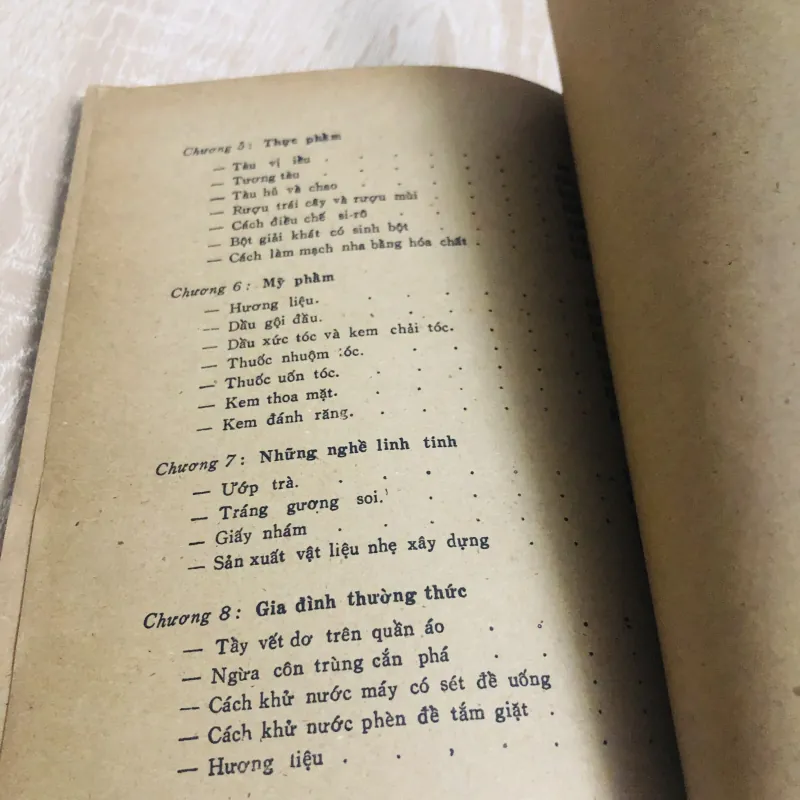 Chương 5: Thực phẩm
— Tàu vị iều
— Tương tàu
— Tàu hũ và chao
— Rượu trái cây và rượu mùi
— Cách điều chế si-rô
— Bột giải khát có sinh bột
— Cách làm mạch nha bằng hóa chất
Chương 6: Mỹ phẩm
— Hương liệu.
— Dầu gội đầu.
— Dầu xức tóc và kem chải tóc.
— Thuốc nhuộm tóc.
— Thuốc uốn tóc.
— Kem thoa mặt.
— Kem đánh răng.
Chương 7: Những nghề linh tinh
— Ướp trà.
— Tráng gương soi.
— Giấy nhám
— Sản xuất vật liệu nhẹ xây dựng
Chương 8: Gia đình thường thức
— Tầy vết dơ trên quần áo
— Ngừa côn trùng cắn phá
— Cách khử nước máy có sét đề uống
— Cách khử nước phèn đề tắm giặt
— Hương liệu